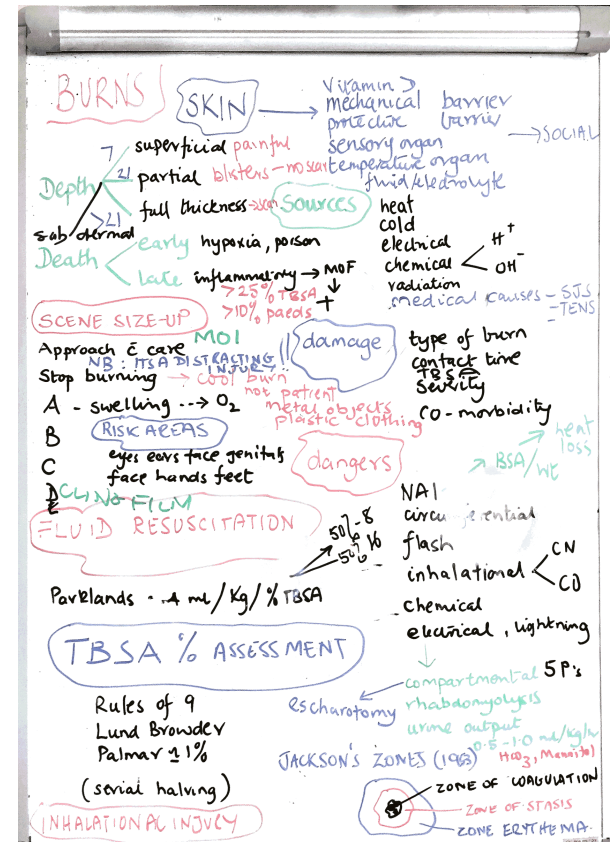 BURNS
SKIN → vitamin D
mechanical barrier
protective barrier
→ SOCIAL
sensory organ
temperature organ
fluid/electrolyte
Depth
7 superficial painful
21 partial blisters - no scar
>21 full thickness → scar
sub dermal
Death
early hypoxia, poison
late inflammatory → MOF
↓
+
>25% TBSA
>10% paeds
Sources
heat
cold
electrical
chemical < H+ OH-
radiation
medical causes - SJS
- TENS
SCENE SIZE-UP
MOI
Approach c̄ care
NB: ITS A DISTRACTING INJURY!!
Stop burning → cool burn
not patient
metal objects
plastic clothing
A - swelling --→ O2
B
C
D
E
RISK AREAS
eyes ears face genitals
face hands feet
CLING FILM
damage
type of burn
contact time
TBSA
Severity
CO-morbidity
dangers
↑ BSA/wt → heat loss
NAI
circumferential
flash
inhalational < CN CO
chemical
electrical, lightning
↓
compartmental 5 P's
rhabdomyolysis
urine output
0.5-1.0 ml/kg/hr
HCO3, Mannitol
escharotomy
FLUID RESUSCITATION
Parklands - 4 ml/kg/% TBSA
50% - 8
50% 16
TBSA % ASSESSMENT
Rules of 9
Lund Browder
Palmar ≃ 1%
(serial halving)
JACKSON'S ZONES (1953)
ZONE OF COAGULATION
ZONE OF STASIS
ZONE ERYTHEMA
INHALATIONAL INJURY